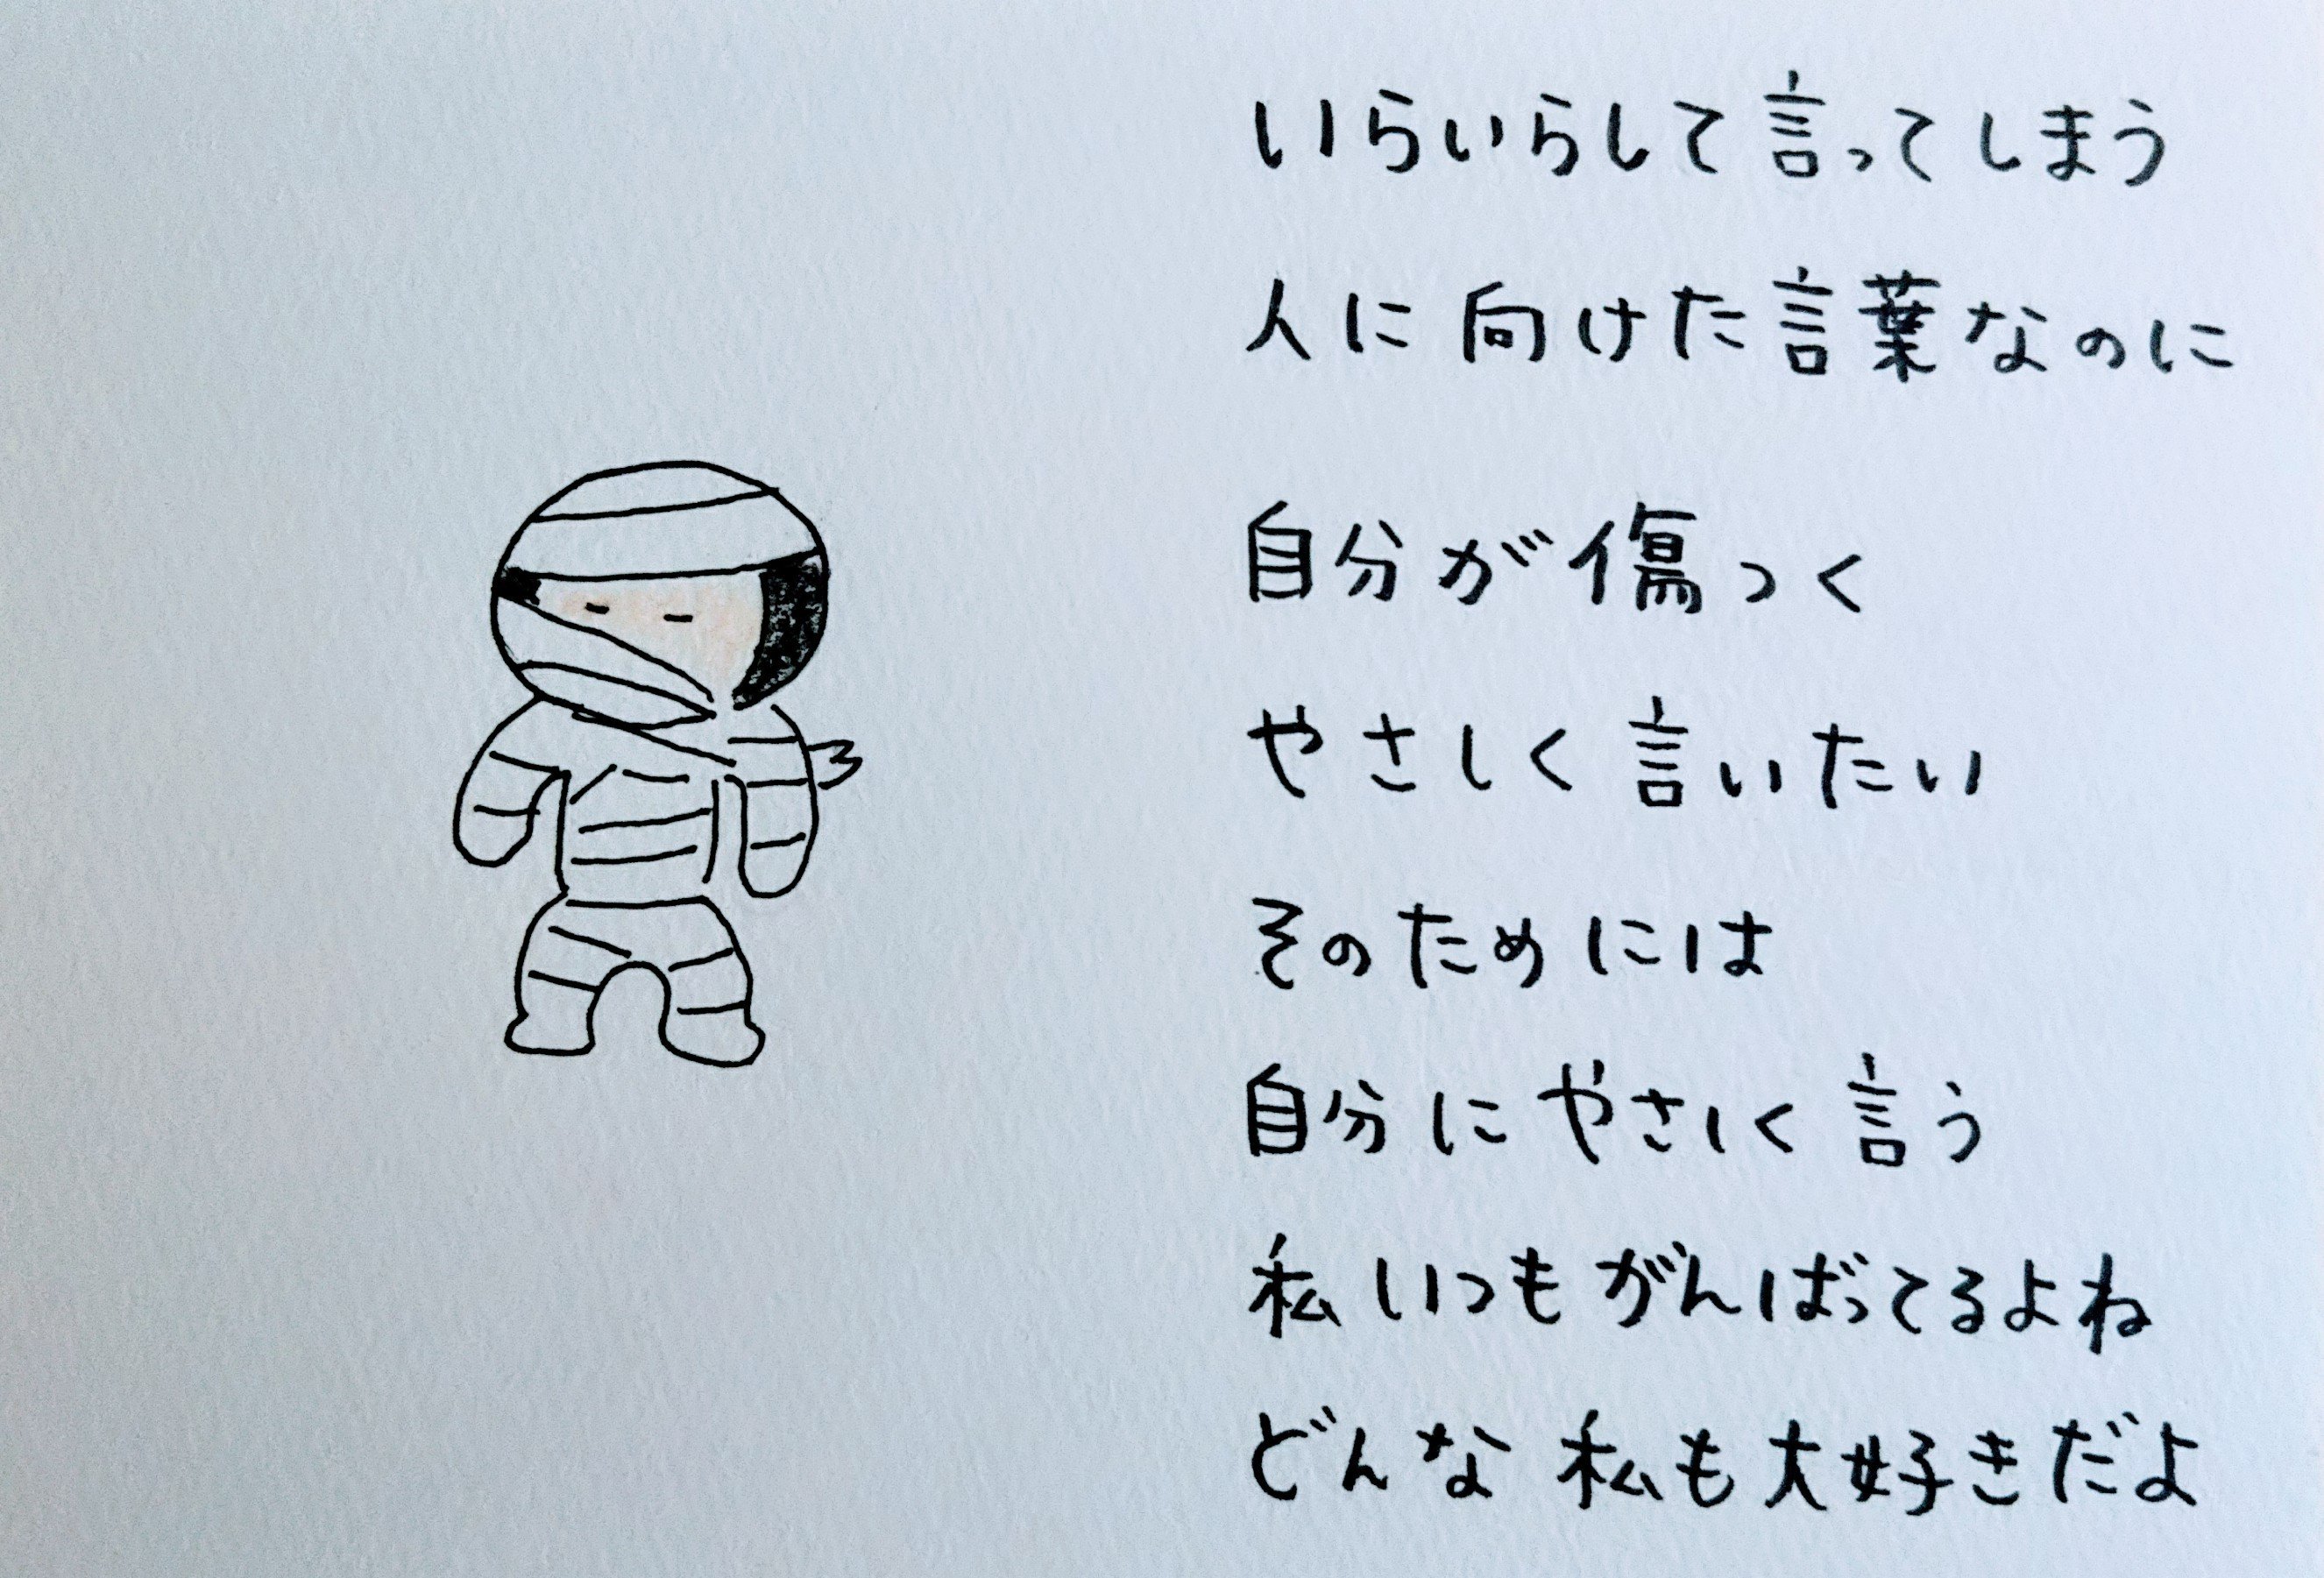 いらいらして言ってしまう
人に向けた言葉なのに
自分が傷つく
やさしく言いたい
そのためには
自分にやさしく言う
私いつもがんばってるよね
どんな私も大好きだよ